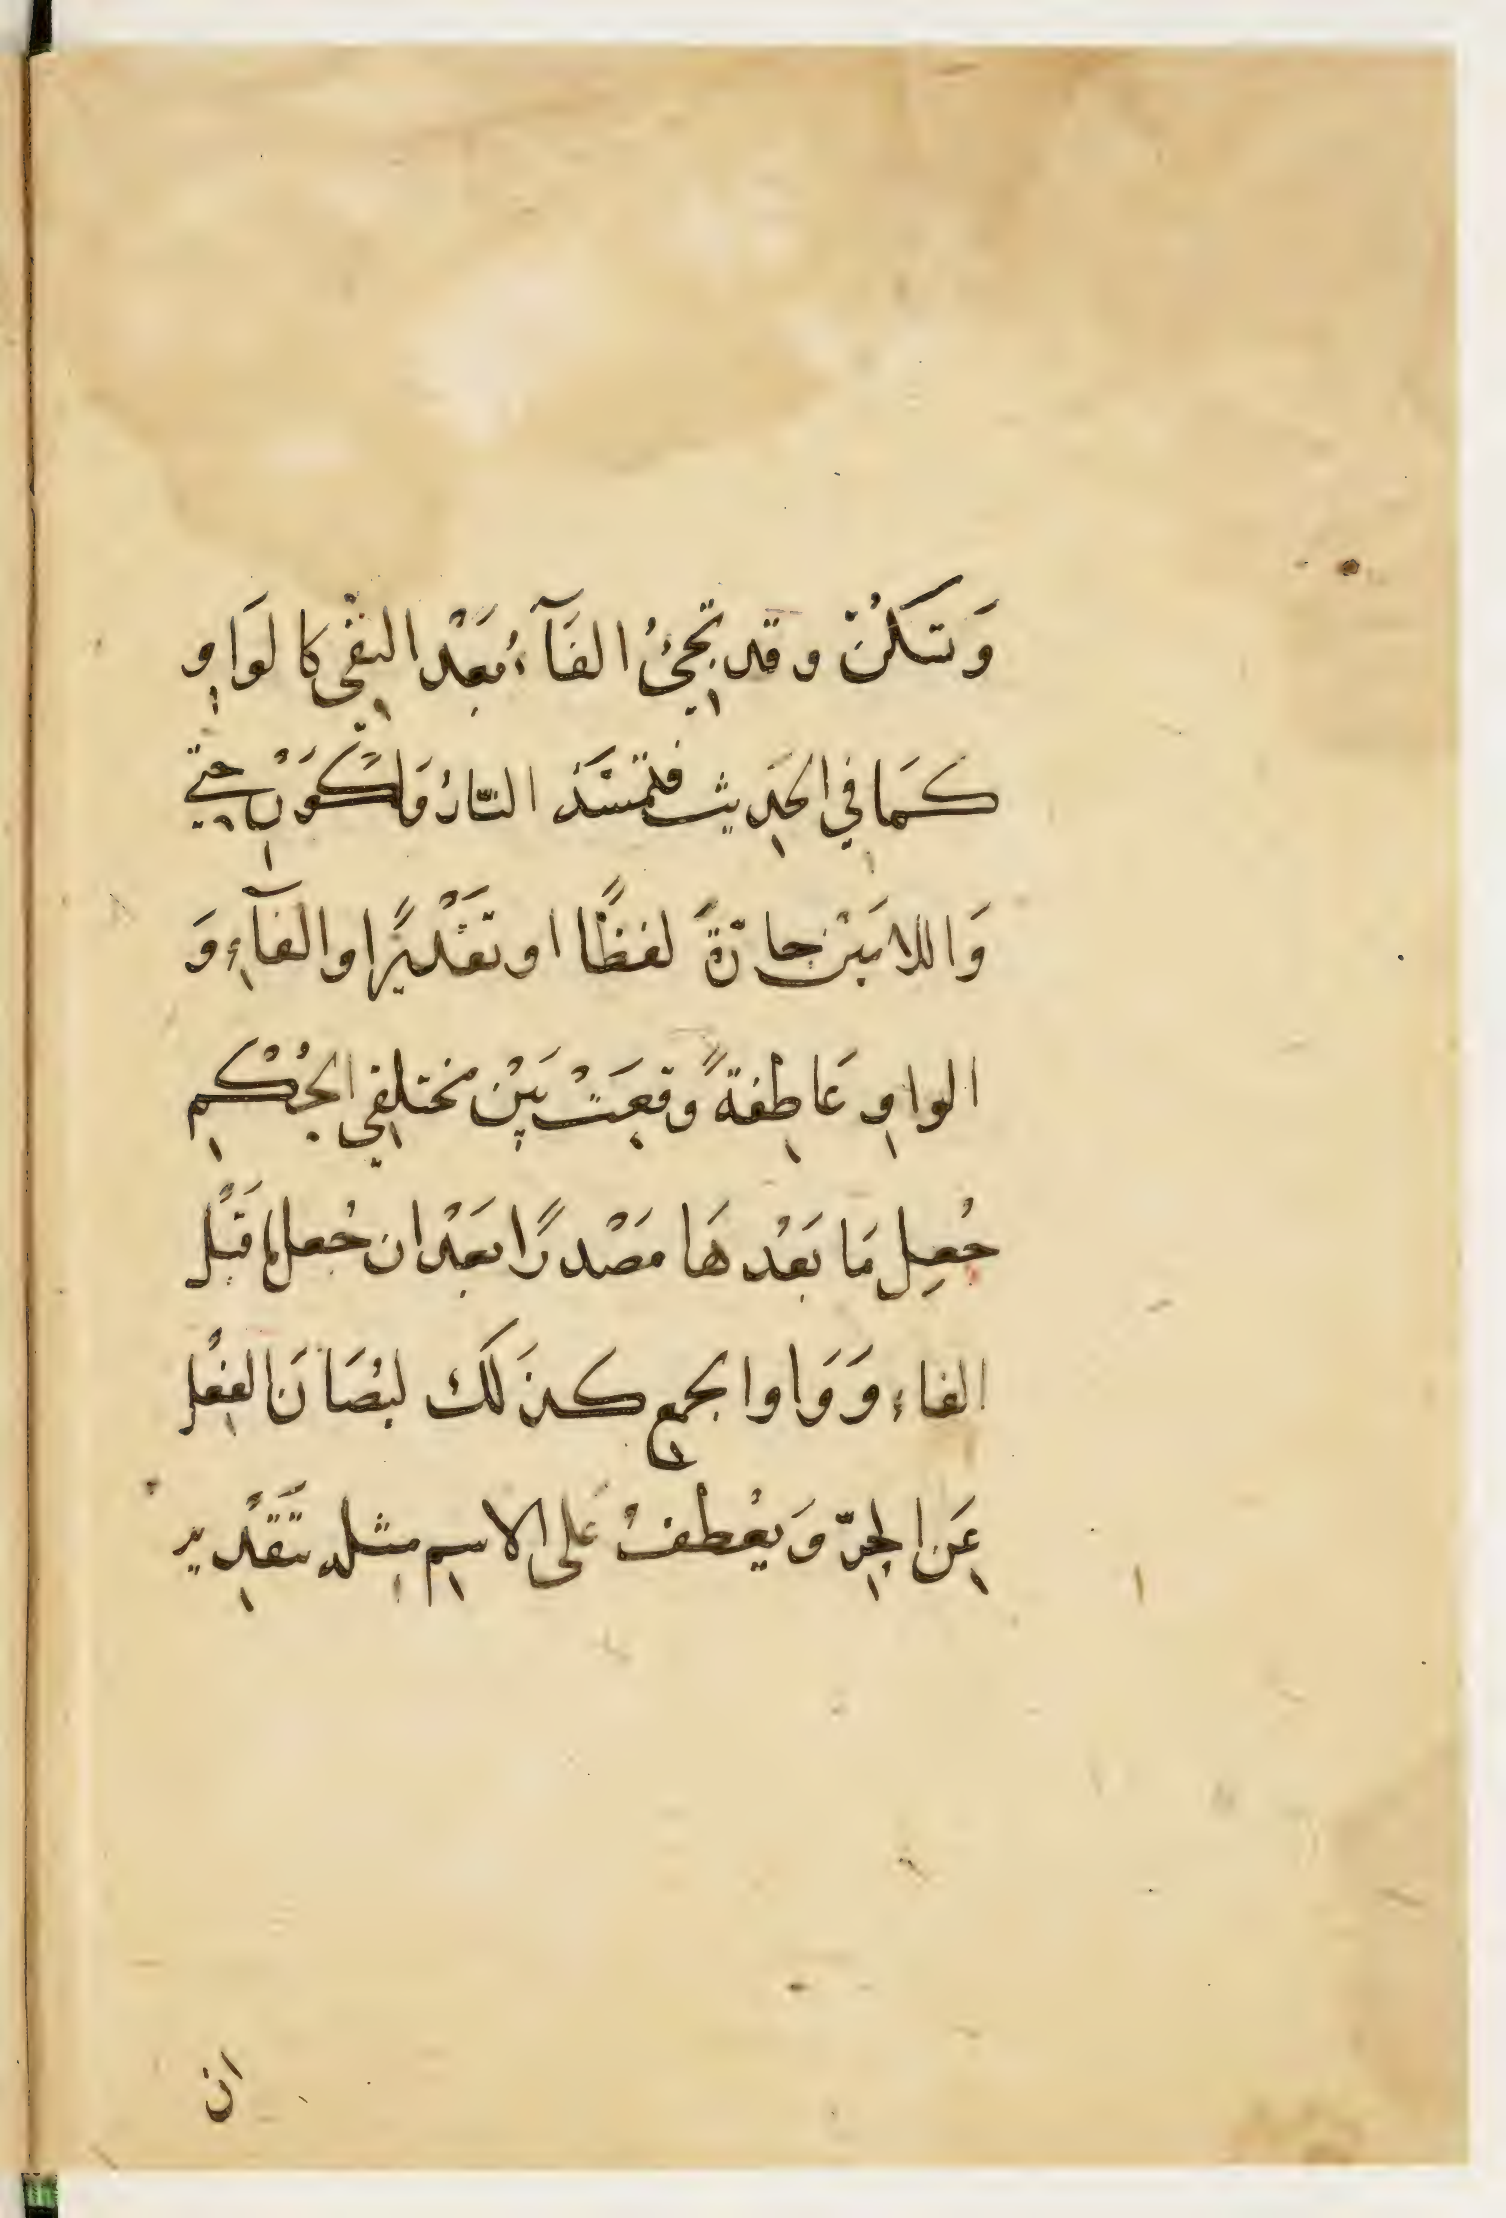 وَتَسْكُنْ وقد تجيْئُ الفَآءُ بَعْد النفْي كالوَاوِ
كَمَا في الحَدِيث فتمَسَّهُ النّارُ وَلِكَوْنِ حتّي
وَاللامَيْن جارّةً لفظًا او تقْدِيرًا والفآءِ وَ
الواوِ عَاطِفةً وقعَتْ بَيْن مختلِفِي الحُكْمِ
جُعِل مَا بَعْدهَا مَصْدرًا بعْد ان جُعل مَا قَبْل
الفاء وَ وَاو الجمعِ كذَلكَ ليُصَانَ الفِعْل
عَنِ الجرّ وَيعْطفُ عَلى الاسمِ مِثله بتَقْدِير
ان